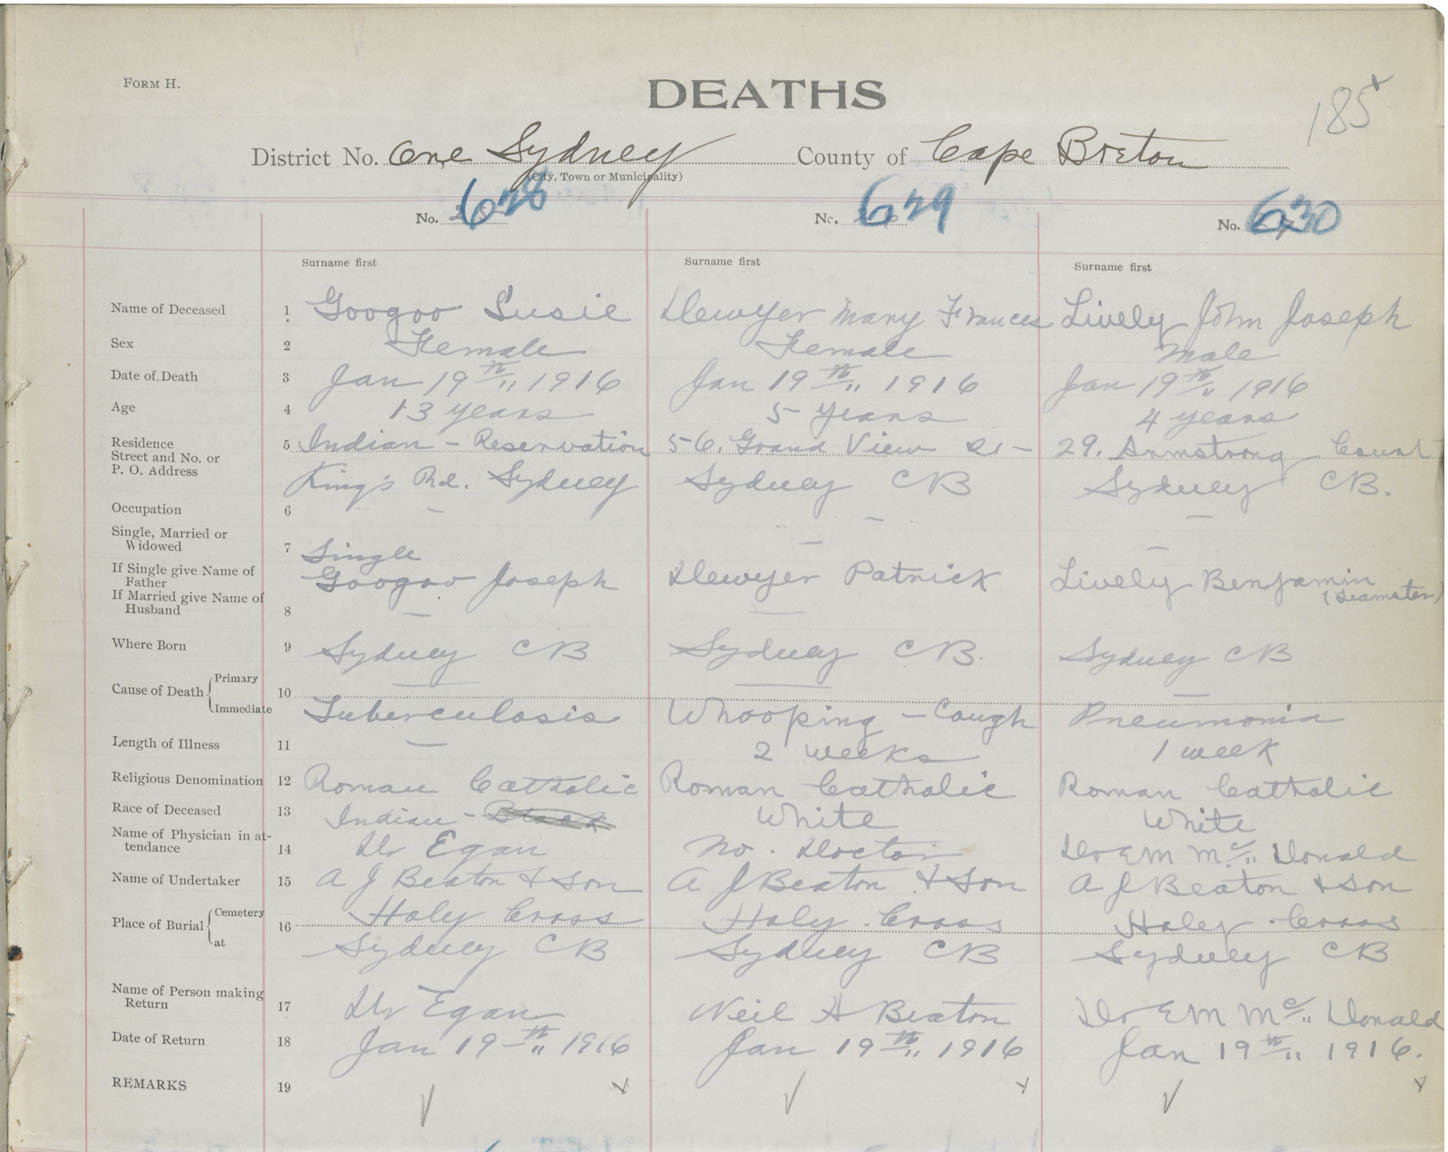 FORM H.
DEATHS
185
District No. One Sydney County of Cape Breton
(City, Town or Municipality)
No. 628 No. 629 No. 630
Surname first Surname first Surname first
Name of Deceased 1 Googoo Susie Dewyer Mary Frances Lively John Joseph
Sex 2 Female Female Male
Date of Death 3 Jan 19th 1916 Jan 19th 1916 Jan 19th 1916
Age 4 13 years 5 years 4 years
Residence 5 Indian - Reservation 56. Grand View St - 29. Armstrong Court
Street and No. or
P. O. Address King's Rd. Sydney Sydney CB Sydney CB.
Occupation 6 - - -
Single, Married or
Widowed 7 Single - -
If Single give Name of
Father Googoo Joseph Dewyer Patrick Lively Benjamin
If Married give Name of (Teamster)
Husband 8 - -
Where Born 9 Sydney CB Sydney CB. Sydney CB
Cause of Death Primary 10 - - -
Immediate Tuberculosis Whooping - Cough Pneumonia
Length of Illness 11 - 2 weeks 1 week
Religious Denomination 12 Roman Catholic Roman Catholic Roman Catholic
Race of Deceased 13 Indian - Black White White
Name of Physician in at-
tendance 14 Dr Egan No. Doctor Dr EM Mc Donald
Name of Undertaker 15 A J Beaton & Son A J Beaton & Son A J Beaton & Son
Place of Burial Cemetery 16 Holy Cross Holy Cross Holy Cross
at Sydney CB Sydney CB Sydney CB
Name of Person making
Return 17 Dr Egan Neil A Beaton Dr EM Mc Donald
Date of Return 18 Jan 19th 1916 Jan 19th 1916 Jan 19th 1916.
REMARKS 19